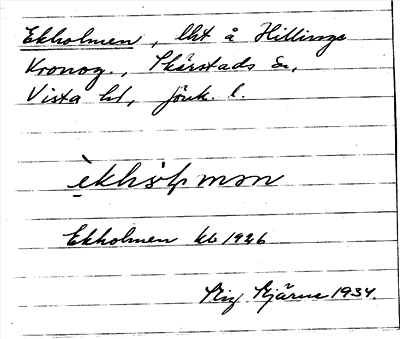 Ekholmen, lht å Hillinge
Kronog., Skärstads sn,
Vista hd, Jönk. l.
Ekholmen kb 1926
Stig Stjärne 1934.